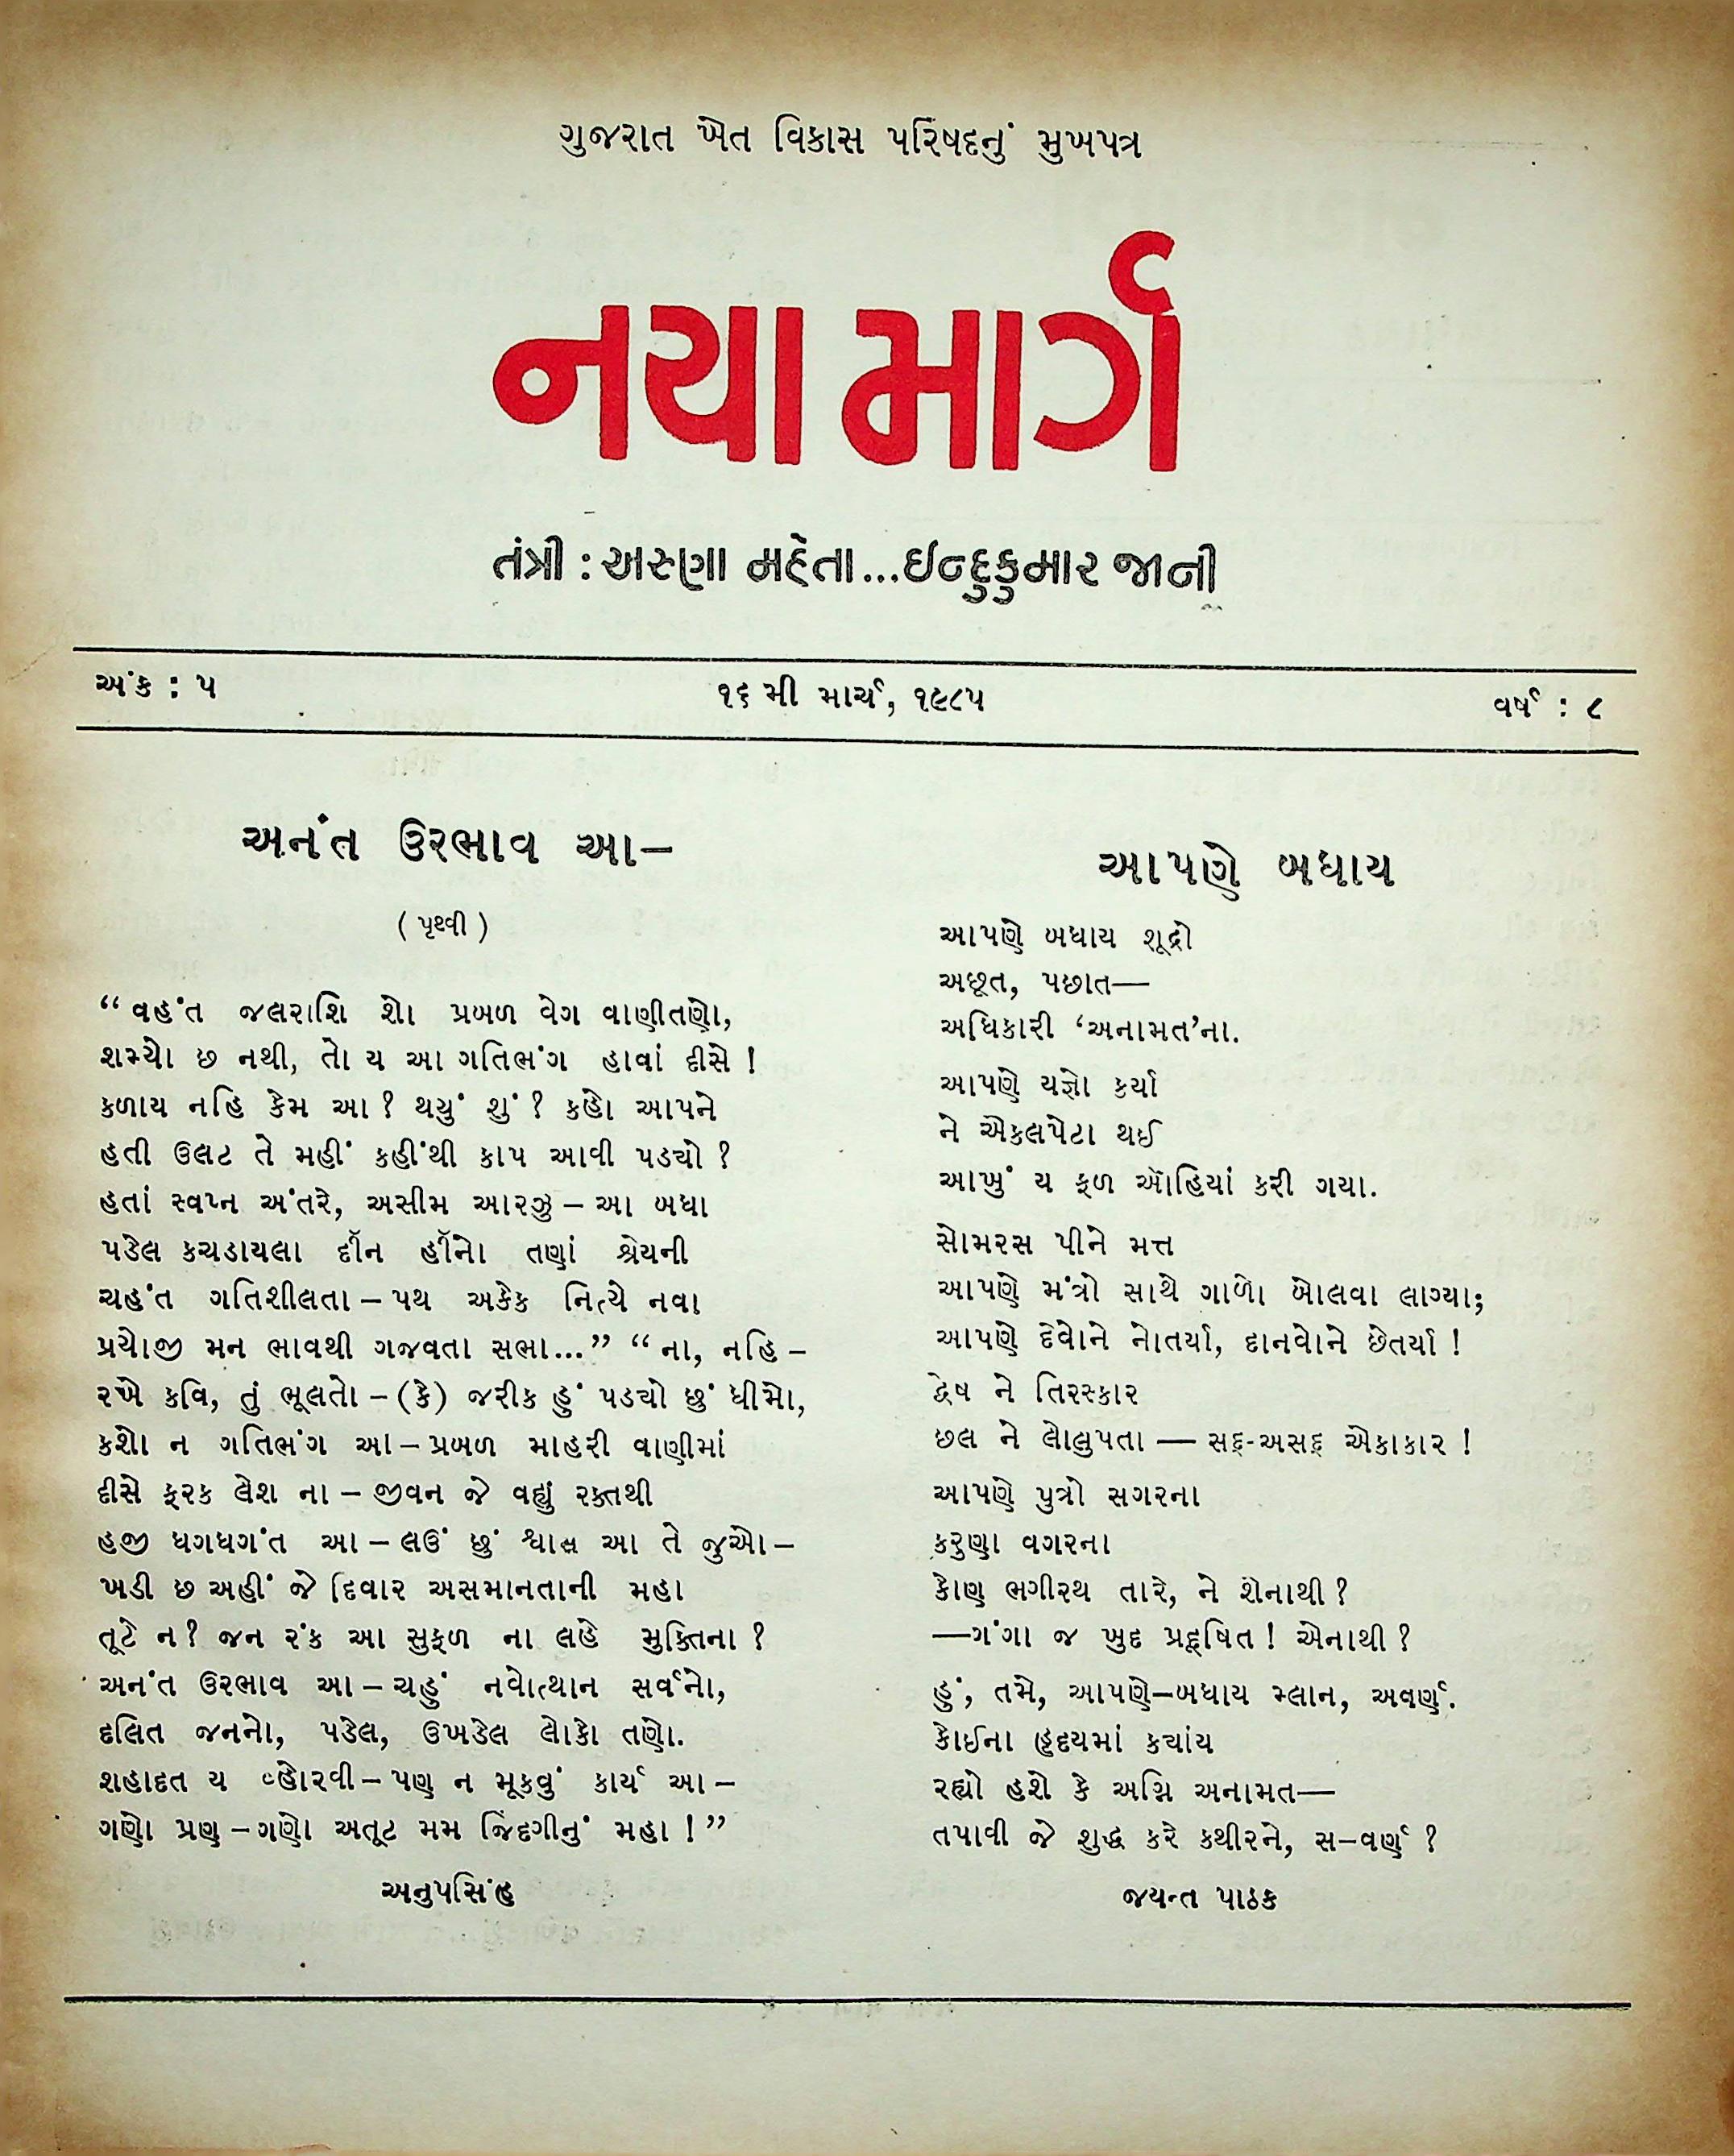 ગુજરાત ખેત વિકાસ પરિષદનું મુખપત્ર
નયા માર્ગ
તંત્રી : અરુણા મહેતા...ઈન્દુકુમાર જાની
અંક : ૫
૧૬ મી માર્ચ, ૧૯૮૫
વર્ષ : ૮
અનંત ઉરભાવ આ–
( પૃથ્વી )
“ વહંત જલરાશિ શો પ્રબળ વેગ વાણીતણો,
શમ્યો છ નથી, તો ય આ ગતિભંગ હાવાં દીસે !
કળાય નહિ કેમ આ ? થયું શું ? કહો આપને
હતી ઉલટ તે મહીં કહીંથી કાપ આવી પડ્યો ?
હતાં સ્વપ્ન અંતરે, અસીમ આરઝુ – આ બધા
પડેલ કચડાયલા દીન હીનો તણાં શ્રેયની
ચહંત ગતિશીલતા – પથ અકેક નિત્યે નવા
પ્રયોજી મન ભાવથી ગજવતા સભા...” “ ના, નહિ –
રખે કવિ, તું ભૂલતો – (કે) જરીક હું પડ્યો છું ધીમો,
કશો ન ગતિભંગ આ – પ્રબળ માહરી વાણીમાં
દીસે ફરક લેશ ના – જીવન જે વહ્યું રક્તથી
હજી ધગધગંત આ – લઉં છું શ્વાસ આ તે જુઓ –
ખડી છ અહીં જે દિવાર અસમાનતાની મહા
તૂટે ન ? જન રંક આ સુફળ ના લહે મુક્તિના ?
અનંત ઉરભાવ આ – ચહું નવોત્થાન સર્વનો,
દલિત જનનો, પડેલ, ઉખડેલ લોકો તણો.
શહાદત ય વ્હોરવી – પણ ન મૂકવું કાર્ય આ –
ગણો પ્રણ – ગણો અતૂટ મમ જિંદગીનું મહા ! ”
અનુપસિંહ
આપણે બધાય
આપણે બધાય શૂદ્રો
અછૂત, પછાત—
અધિકારી ‘અનામત’ના.
આપણે યજ્ઞો કર્યા
ને એકલપેટા થઈ
આખું ય ફળ ઓહિયાં કરી ગયા.
સોમરસ પીને મત્ત
આપણે મંત્રો સાથે ગાળો બોલવા લાગ્યા;
આપણે દેવોને નોતર્યા, દાનવોને છેતર્યા !
દ્વેષ ને તિરસ્કાર
છલ ને લોલુપતા — સદ્-અસદ્ એકાકાર !
આપણે પુત્રો સગરના
કરુણા વગરના
કોણ ભગીરથ તારે, ને શેનાથી ?
—ગંગા જ ખુદ પ્રદૂષિત ! એનાથી ?
હું, તમે, આપણે–બધાય મ્લાન, અવર્ણ.
કોઈના હૃદયમાં ક્યાંય
રહ્યો હશે કે અગ્નિ અનામત—
તપાવી જે શુદ્ધ કરે કથીરને, સ–વર્ણ ?
જયન્ત પાઠક